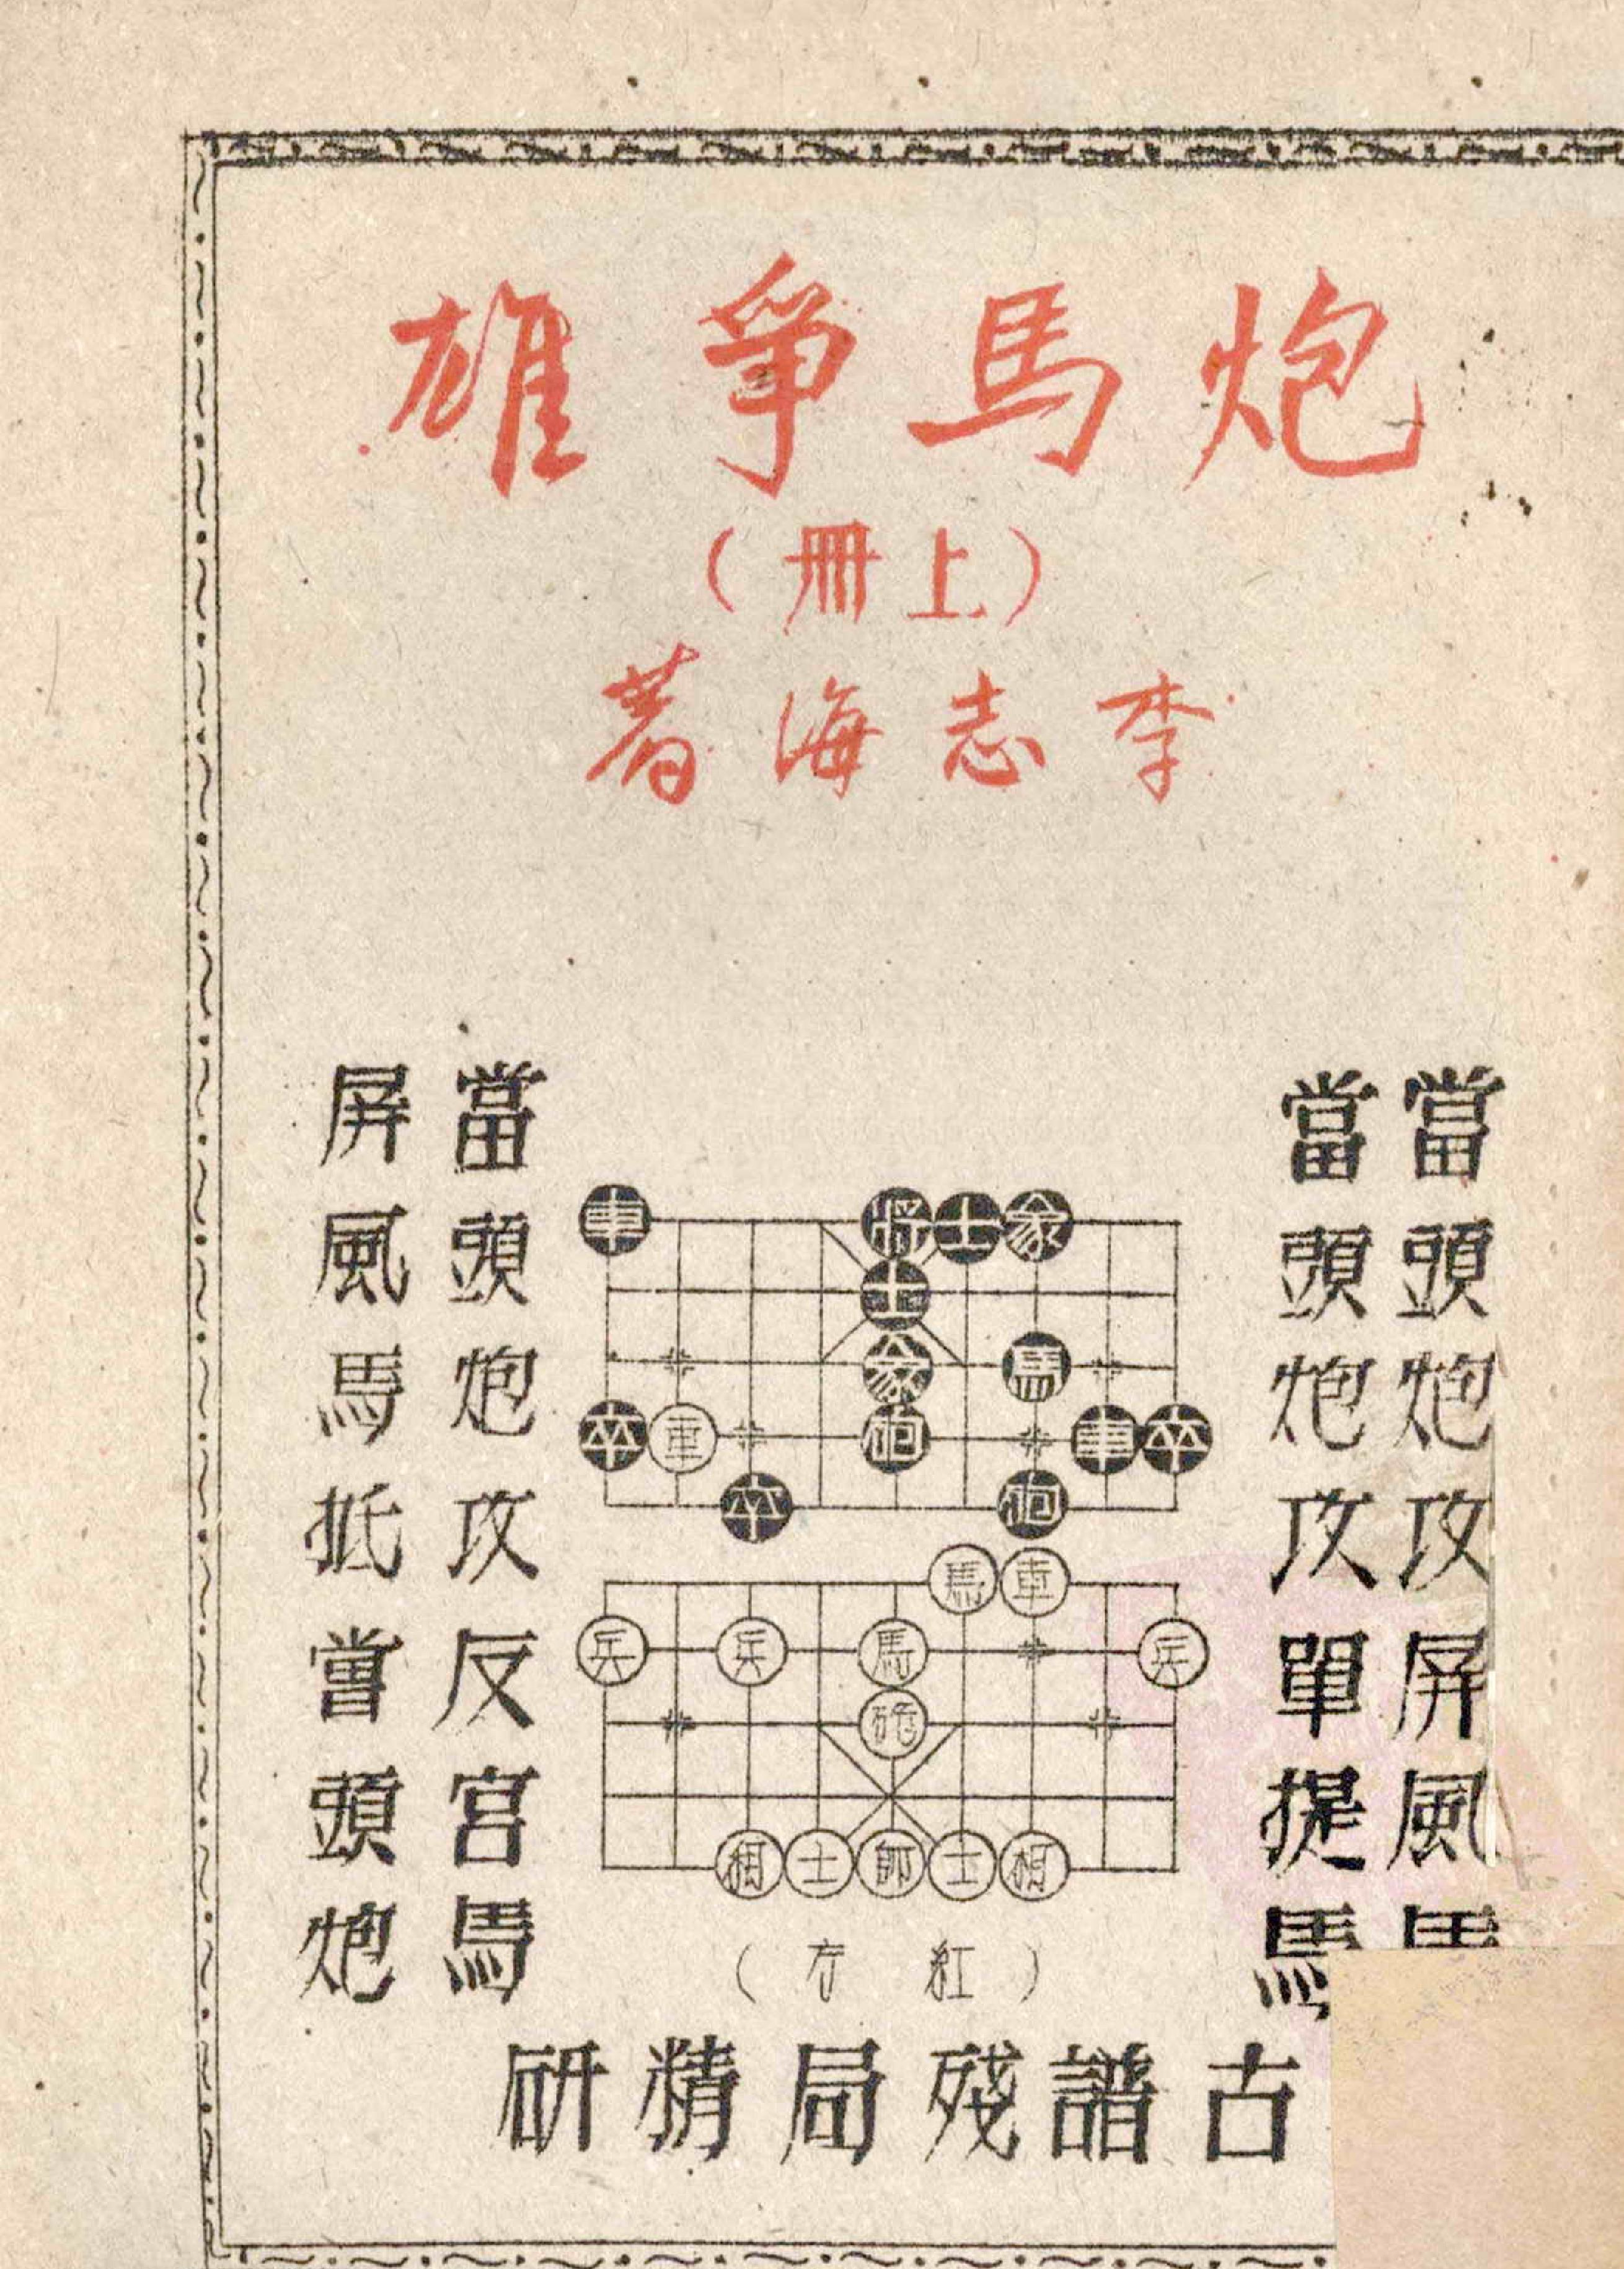 炮馬爭雄
（上冊）
李志海著
當頭炮攻屏風馬
當頭炮攻單提馬
當頭炮攻反宮馬
屏風馬抵當頭炮
車將士象
士
象馬
卒車砲車卒
卒砲
馬車
兵兵馬兵
砲
相士帥士相
（紅方）
古譜殘局精研